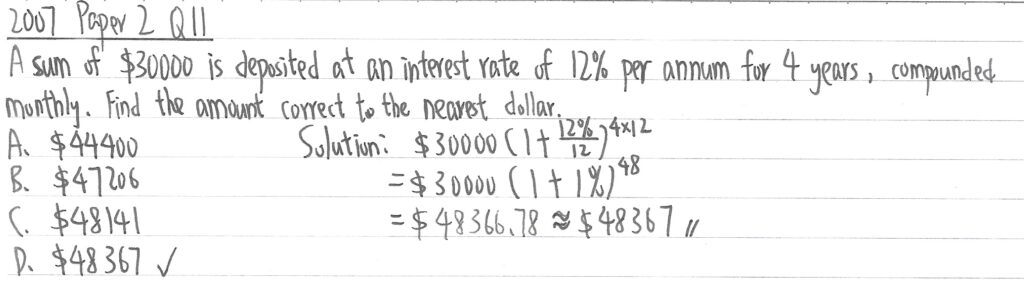 2007 Paper 2 Q11
A sum of $30000 is deposited at an interest rate of 12% per annum for 4 years, compounded
monthly. Find the amount correct to the nearest dollar.
A. $44400 Solution: $30000 (1 + 12%/12)^4×12
B. $47206 = $30000 (1 + 1%)^48
C. $48141 = $48366.78 ≈ $48367 //
D. $48367 ✓